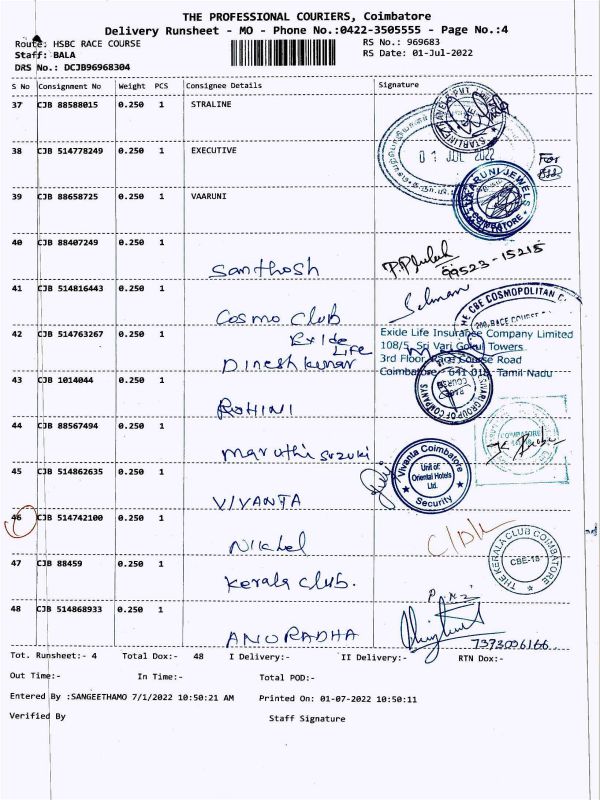 THE PROFESSIONAL COURIERS, Coimbatore
Delivery Runsheet - MO - Phone No.:0422-3505555 - Page No.:4
Route: HSBC RACE COURSE
RS No.: 969683
Staff: BALA
RS Date: 01-Jul-2022
DRS No.: DCJB96968304
S No Consignment No Weight PCS Consignee Details Signature
37 CJB 88588015 0.250 1 STRALINE
38 CJB 514778249 0.250 1 EXECUTIVE
01 JUL 2022
For
39 CJB 88658725 0.250 1 VAARUNI
VAARUNI JEWELS
COIMBATORE
40 CJB 88407249 0.250 1
Santhosh
99523-15215
41 CJB 514816443 0.250 1
Selman
Cosmo Club
THE CBE COSMOPOLITAN C
200, RACE COURSE
42 CJB 514763267 0.250 1
Exide Life
Dineshkumar
Exide Life Insurance Company Limited
108/5, Sri Vari Gokul Towers
3rd Floor, Race Course Road
Coimbatore - 641 018, Tamil Nadu
43 CJB 1014044 0.250 1
ROHINI
SRIVARI GROUP OF COMPANY
RACE COURSE
44 CJB 88567494 0.250 1
maruthi suzuki
COIMBATORE
45 CJB 514862635 0.250 1
VIVANTA
Vivanta Coimbatore
Unit of:
Oriental Hotels
Ltd.
Security
46 CJB 514742100 0.250 1
Nikhel
47 CJB 88459 0.250 1
Kerala Club.
THE KERALA CLUB COIMBATORE
CBE-18
48 CJB 514868933 0.250 1
ANURADHA
7373006166
Tot. Runsheet:- 4 Total Dox:- 48 I Delivery:- II Delivery:- RTN Dox:-
Out Time:- In Time:- Total POD:-
Entered By :SANGEETHAMO 7/1/2022 10:50:21 AM Printed On: 01-07-2022 10:50:11
Verified By Staff Signature